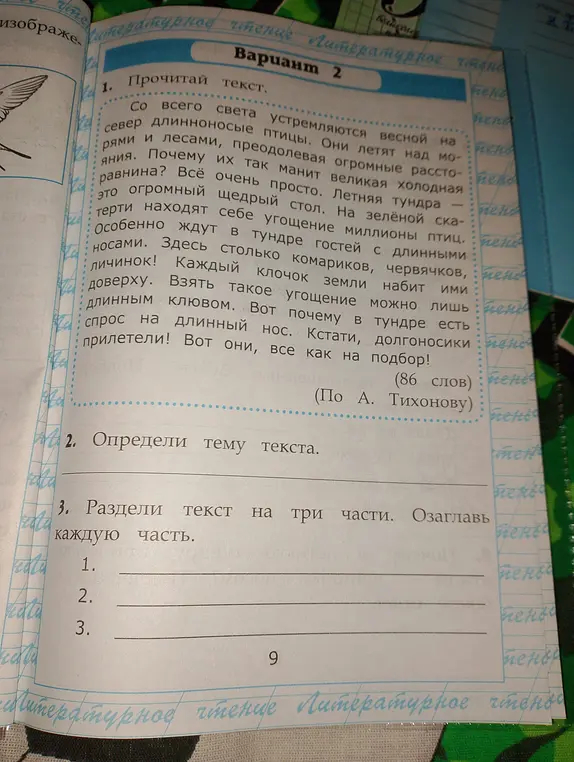 изображе-
Литературное чтение Литературное чтень
Вариант 2
1. Прочитай текст.
Со всего света устремляются весной на
север длинноносые птицы. Они летят над мо-
рями и лесами, преодолевая огромные рассто-
яния. Почему их так манит великая холодная
равнина? Всё очень просто. Летняя тундра —
это огромный щедрый стол. На зелёной ска-
терти находят себе угощение миллионы птиц.
Особенно ждут в тундре гостей с длинными
носами. Здесь столько комариков, червячков,
личинок! Каждый клочок земли набит ими
доверху. Взять такое угощение можно лишь
длинным клювом. Вот почему в тундре есть
спрос на длинный нос. Кстати, долгоносики
прилетели! Вот они, все как на подбор!
(86 слов)
(По А. Тихонову)
2. Определи тему текста.
3. Раздели текст на три части. Озаглавь
каждую часть.
1.
2.
3.
9
Литературное чтение Литературное чтень